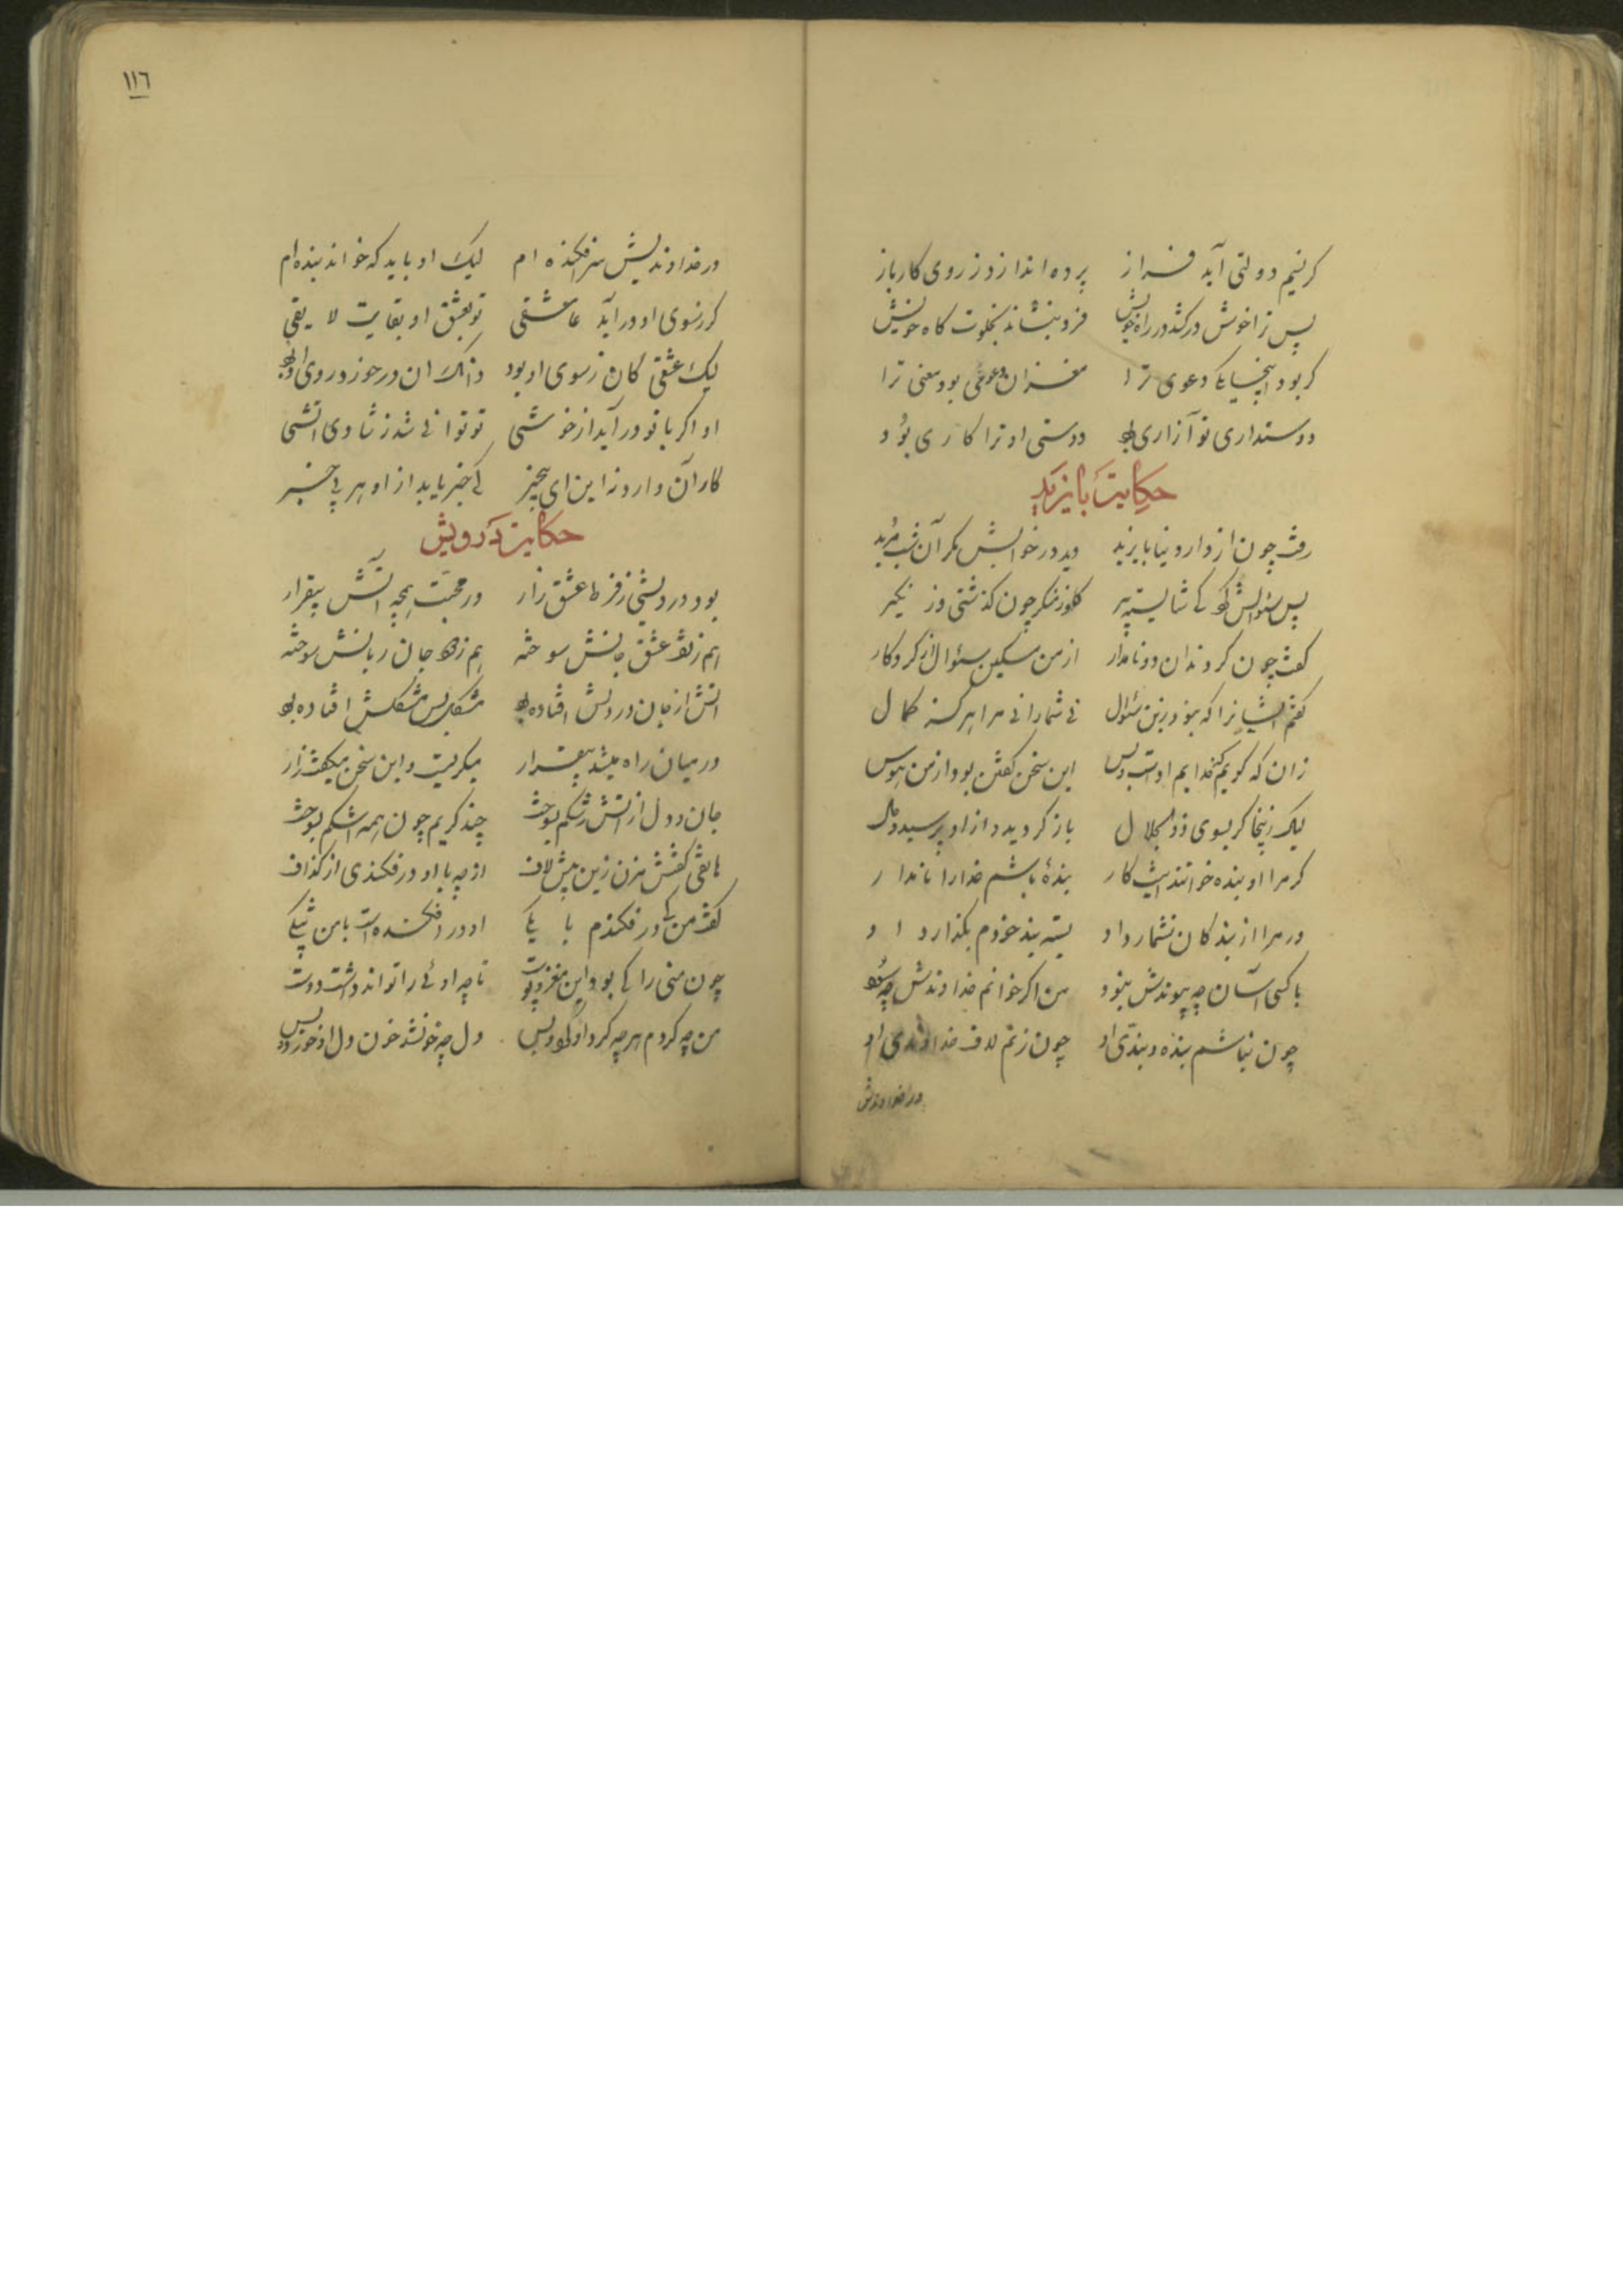 گر نسیم دولتی آید فراز پرده اندازد ز روی کار باز
پس ترا خوش درکشد در راه خویش فرو بنشاند بخلوت گاه خویش
گر بود اینجایکا دعوی ترا مغز آن دعوی بود معنی ترا
دوستداری تو آزاری بود دوستی او ترا کاری بود
حکایت بایزید
رفت چون از دار دنیا بایزید دید در خوابش مگر آن شب مرید
پس سئوالش کرد کای شایسته پیر کوز منکر چون گذشتی وز نکیر
گفت چون کردند آن دو نامدار از من مسکین سئوال از کردگار
گفتم ایشانرا که نبود زین سئوال نی شما را نی مرا هرگز کمال
زان که گویم گر خدایم اوست و بس این سخن گفتن بود از من هوس
لیک زینجا گر بسوی ذوالجلال باز گردید و از او پرسید حال
گر مرا او بنده خواند اینت کار بندۀ باشم خدا را نامدار
ور مرا از بندگان نشمارد او بسته بند خودم بگذارد او
با کسی آسان چه پیوندش نبود من اگر خوانم خداوندش چه سود
چون نباشم بنده و بندی او چون زنم لاف خداوندی او
در خداوندیش
١١٦
در خداوندیش سر افکنده ام لیک او باید که خواند بنده ام
گر ز سوی او در آید عاشقی تو بعشق او بغایت لایقی
لیک عشقی کان ز سوی او بود دانک آن در خور د روی او بود
او اگر با تو در آید از خوشی تو توانی شد ز شادی آتشی
کار آن دارد نه این ای بیخبر کی خبر یابد از او هر بی خبر
حکایت درویش
بود درویشی ز فرط عشق زار در محبت همچو آتش بیقرار
هم ز تف عشق جانش سوخته هم ز تف جان زبانش سوخته
آتش از جان در دلش افتاده بود مشکلی بس مشکلش افتاده بود
در میان راه میشد بیقرار میگریست و این سخن میگفت زار
جان و دل از آتش رشکم بسوخت چند گریم چون همه اشکم بسوخت
هاتفی گفتش مزن زین بیش لاف از چه با او در فکندی از گذاف
گفت من کی در فکندم با یکی او در افکنده است با من بیشکی
چون منی را کی بود این مغز و پوست تا چه اوئی را تواند داشت دوست
من چه کردم هر چه کرد او کرد و بس دل چه خونشد خون دل او خورد و بس